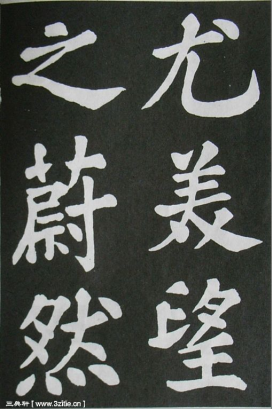 尤美望
之蔚然
三典轩[www.3zitie.cn]